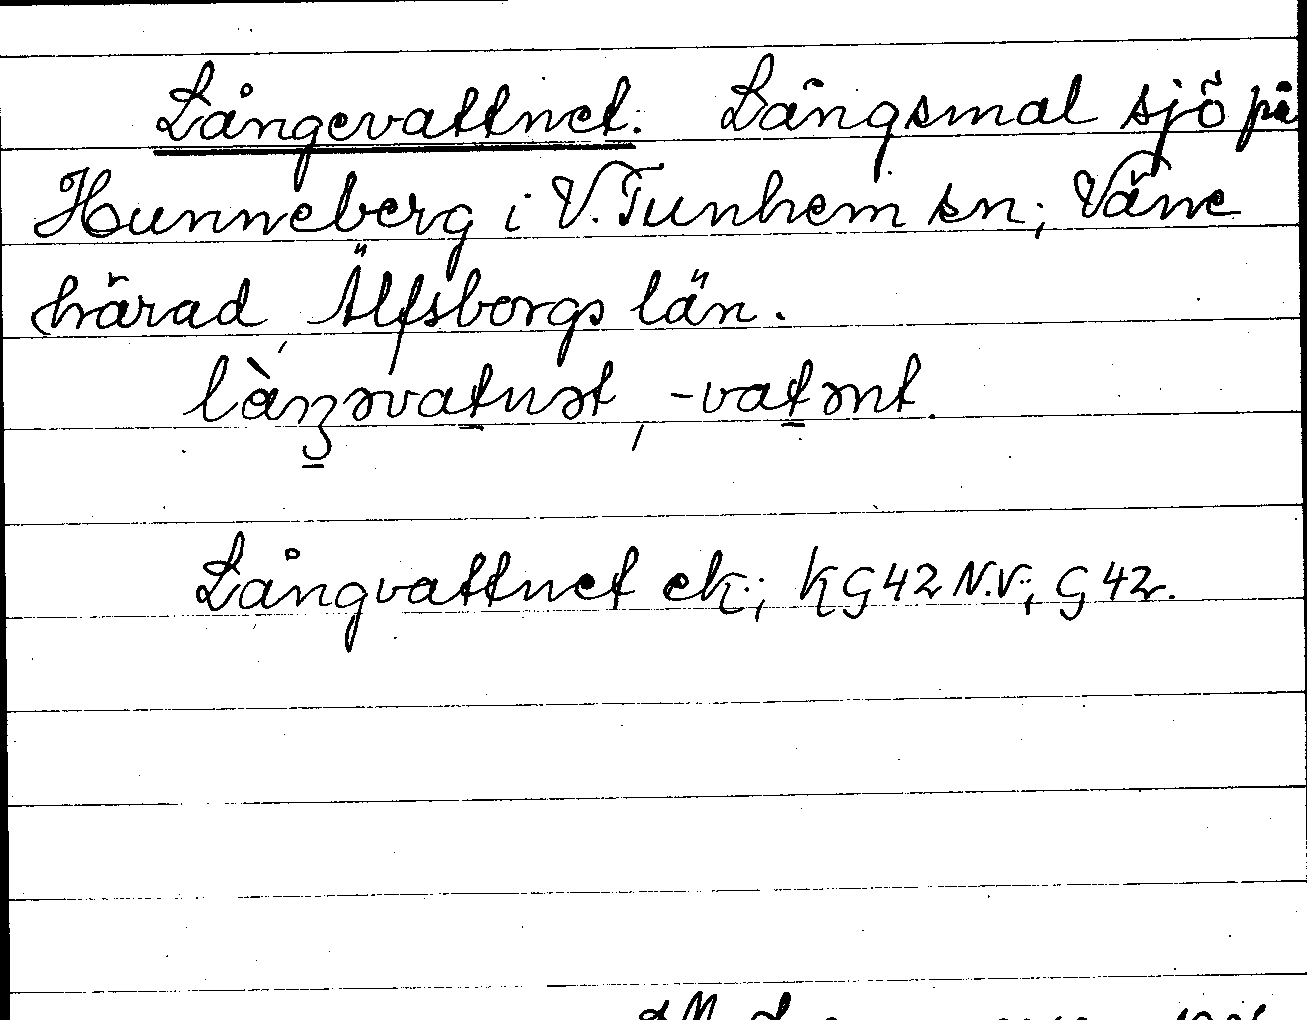 Långevattnet. Långsmal sjö på
Hunneberg i V. Tunhem sn; Väne
härad, Älfsborgs län.
Långvattnet ek.; KG42 N.V.; G 42.